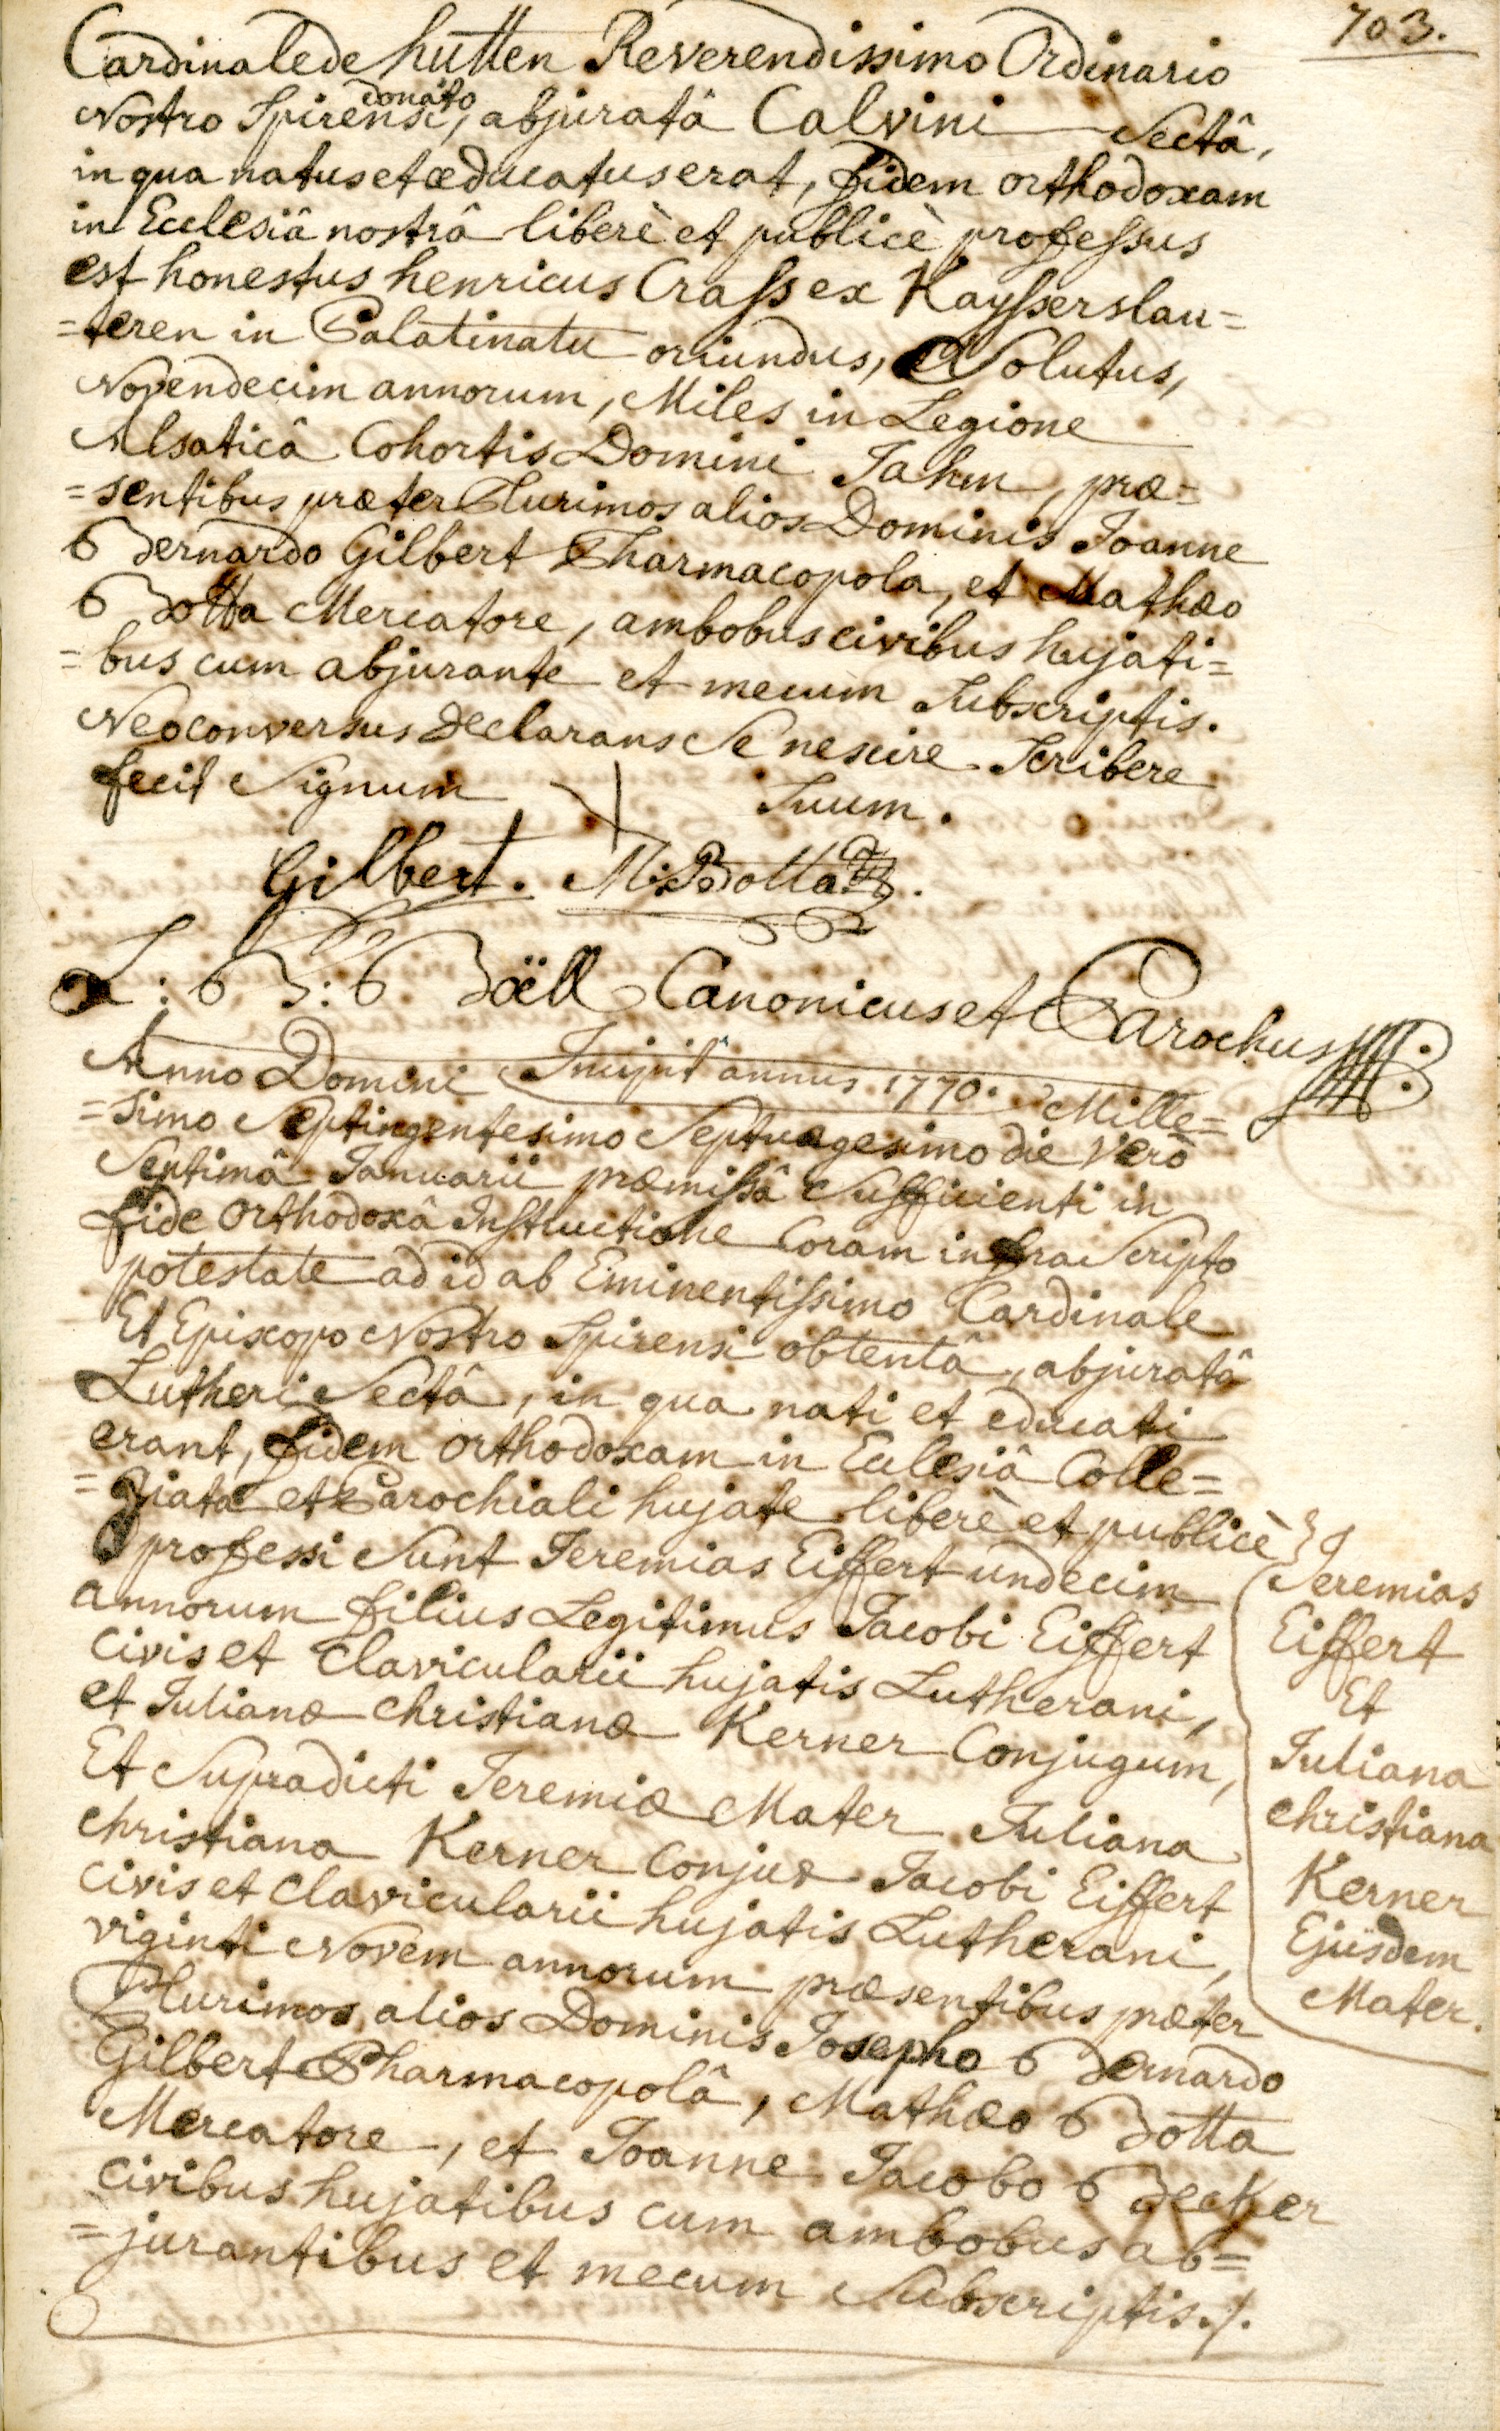 703.
Cardinale de hutten Reverendissimo Ordinario
Nostro Spirensi, donato abjuratâ Calvini Sectâ,
in qua natus et æducatus erat, fidem orthodoxam
in Ecclesiâ nostrâ liberè et publicè professus
est honestus henricus Crass ex Kaysserslau=
=teren in Palatinatu oriundus, Solutus,
Novendecim annorum, Miles in Legione
Alsaticâ Cohortis Domini Jahm, præ=
=sentibus præter Plurimos alios Dominis Joanne
Bernardo Gilbert Pharmacopola, et Mathæo
Botta Mercatore, ambobus civibus hujati=
=bus cum abjurante et mecum Subscriptis.
Neoconversus declarans Se nescire Scribere
fecit Signum Suum.
Gilbert. M: Botta
L: B: Bäll Canonicus et Parochus
Incipit annus 1770.
Anno Domini Mille=
=simo Septingentesimo Septuagesimo die Verò
Septimâ Januarii præmissâ Sufficienti in
fide Orthodoxâ Instructione Coram infra Scripto
potestate ad id ab Eminentissimo Cardinale
Et Episcopo Nostro Spirensi obtentâ, abjuratâ
Lutheri Sectâ, in qua nati et educati
erant, fidem orthodoxam in Ecclesiâ Colle=
=giata et Parochiali hujate liberè et publicè
professi Sunt Jeremias Eiffert undecim
annorum filius Legitimus Jacobi Eiffert
Civis et Clavicularii hujatis Lutherani,
et Julianæ Christianæ Kerner Conjugum,
Et Supradicti Jeremiæ Mater Juliana
Christiana Kerner Conjux Jacobi Eiffert
Civis et Clavicularii hujatis Lutherani,
viginti Novem annorum præsentibus præter
Plurimos alios Dominis Josepho Bernardo
Gilbert Pharmacopolâ, Mathæo Botta
Mercatore, et Joanne Jacobo Becker
Civibus hujatibus cum ambobus ab=
=jurantibus et mecum Subscriptis./.
Jeremias
Eiffert
Et
Juliana
Christiana
Kerner
Ejusdem
Mater.